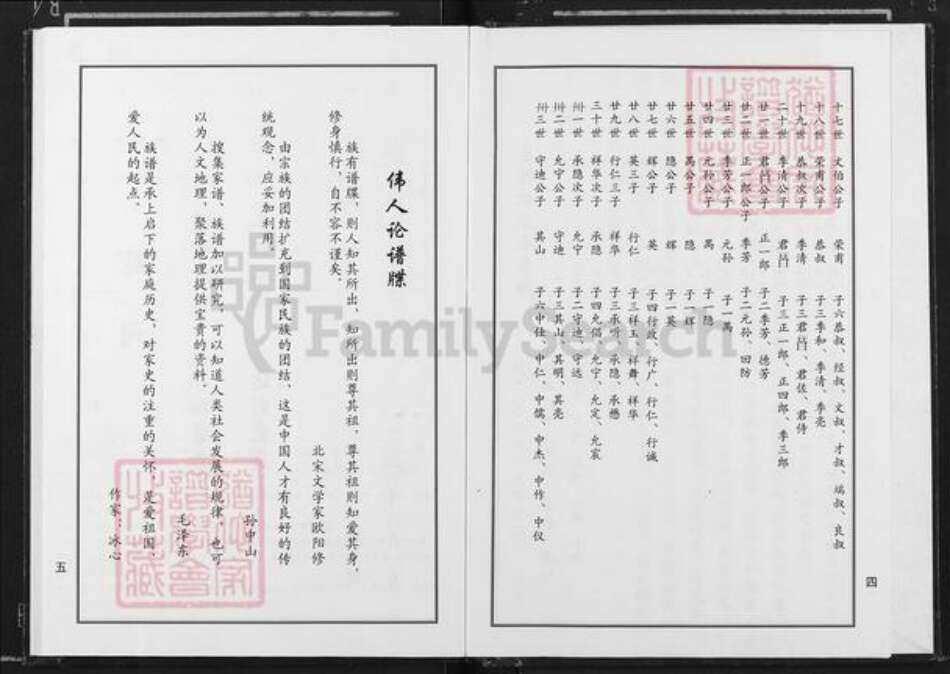 十七世 文伯公子 荣甫 子六恭叔、经叔、文叔、才叔、端叔、良叔
十八世 荣甫公子 恭叔 子三季和、季清、季亮
十九世 恭叔次子 季清 子三君吕、君佐、君侍
二十世 季清公子 君吕 子三正一郎、正四郎、季三郎
廿一世 君吕公子 正一郎 子二季芳、德芳
廿二世 正一郎公子 季芳 子二元孙、回防
廿三世 季芳公子 元孙 子一禹
廿四世 元孙公子 禹 子一隐
廿五世 禹公子 隐 子一辉
廿六世 隐公子 辉 子一英
廿七世 辉公子 英 子四行政、行广、行仁、行诚
廿八世 英三子 行仁 子三祥玉、祥舞、祥华
廿九世 行仁三子 祥华 子三承鸣、承隐、承懋
三十世 祥华次子 承隐 子四允倡、允宁、允定、允宸
卅一世 承隐次子 允宁 子二守迪、守远
卅二世 允宁公子 守迪 子三其山、其明、其亮
卅三世 守迪公子 其山 子六中仕、中仁、中儒、中杰、中作、中仪
四
伟人论谱牒
族有谱牒，则人知其所出，知所出则尊其祖，尊其祖则知爱其身，
修身慎行，自不容不谨矣。
北宋文学家欧阳修
由宗族的团结扩充到国家民族的团结，这是中国人才有良好的传
统观念，应妥加利用。
孙中山
搜集家谱、族谱加以研究，可以知道人类社会发展的规律，也可
以为人文地理，聚落地理提供宝贵的资料。
毛泽东
族谱是承上启下的家庭历史，对家史的注重的关怀，是爱祖国，
爱人民的起点。
作家：冰心
五
FamilySearch